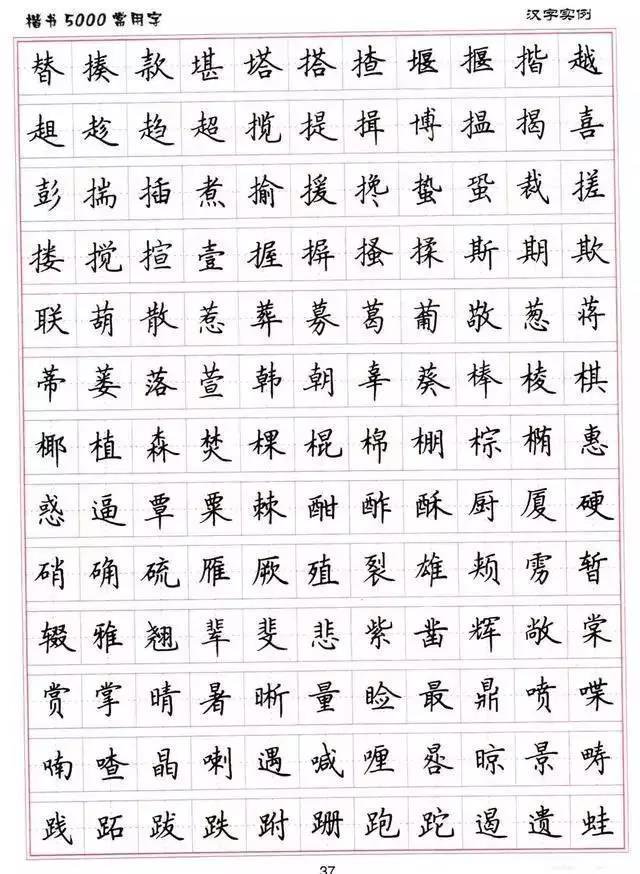 楷书5000常用字 汉字实例
替 揍 款 堪 塔 搭 揸 堰 揠 揩 越
趄 趁 趋 超 揽 提 揖 博 揾 揭 喜
彭 揣 插 煮 揄 援 搀 蛰 蛩 裁 搓
搂 搅 揎 壹 握 摒 搔 揉 斯 期 欺
联 葫 散 惹 葬 募 葛 葡 敬 葱 蒋
蒂 蒌 落 萱 韩 朝 辜 葵 棒 棱 棋
椰 植 森 焚 棵 棍 棉 棚 棕 椭 惠
惑 逼 覃 粟 棘 酣 酢 酥 厨 厦 硬
硝 确 硫 雁 厥 殖 裂 雄 颊 雳 暂
辍 雅 翘 辈 斐 悲 紫 凿 辉 敞 棠
赏 掌 晴 暑 晰 量 睑 最 鼎 喷 喋
喃 喳 晶 喇 遇 喊 喱 晷 晾 景 畴
践 跖 跋 跌 跗 跚 跑 跎 遏 遗 蛙
37